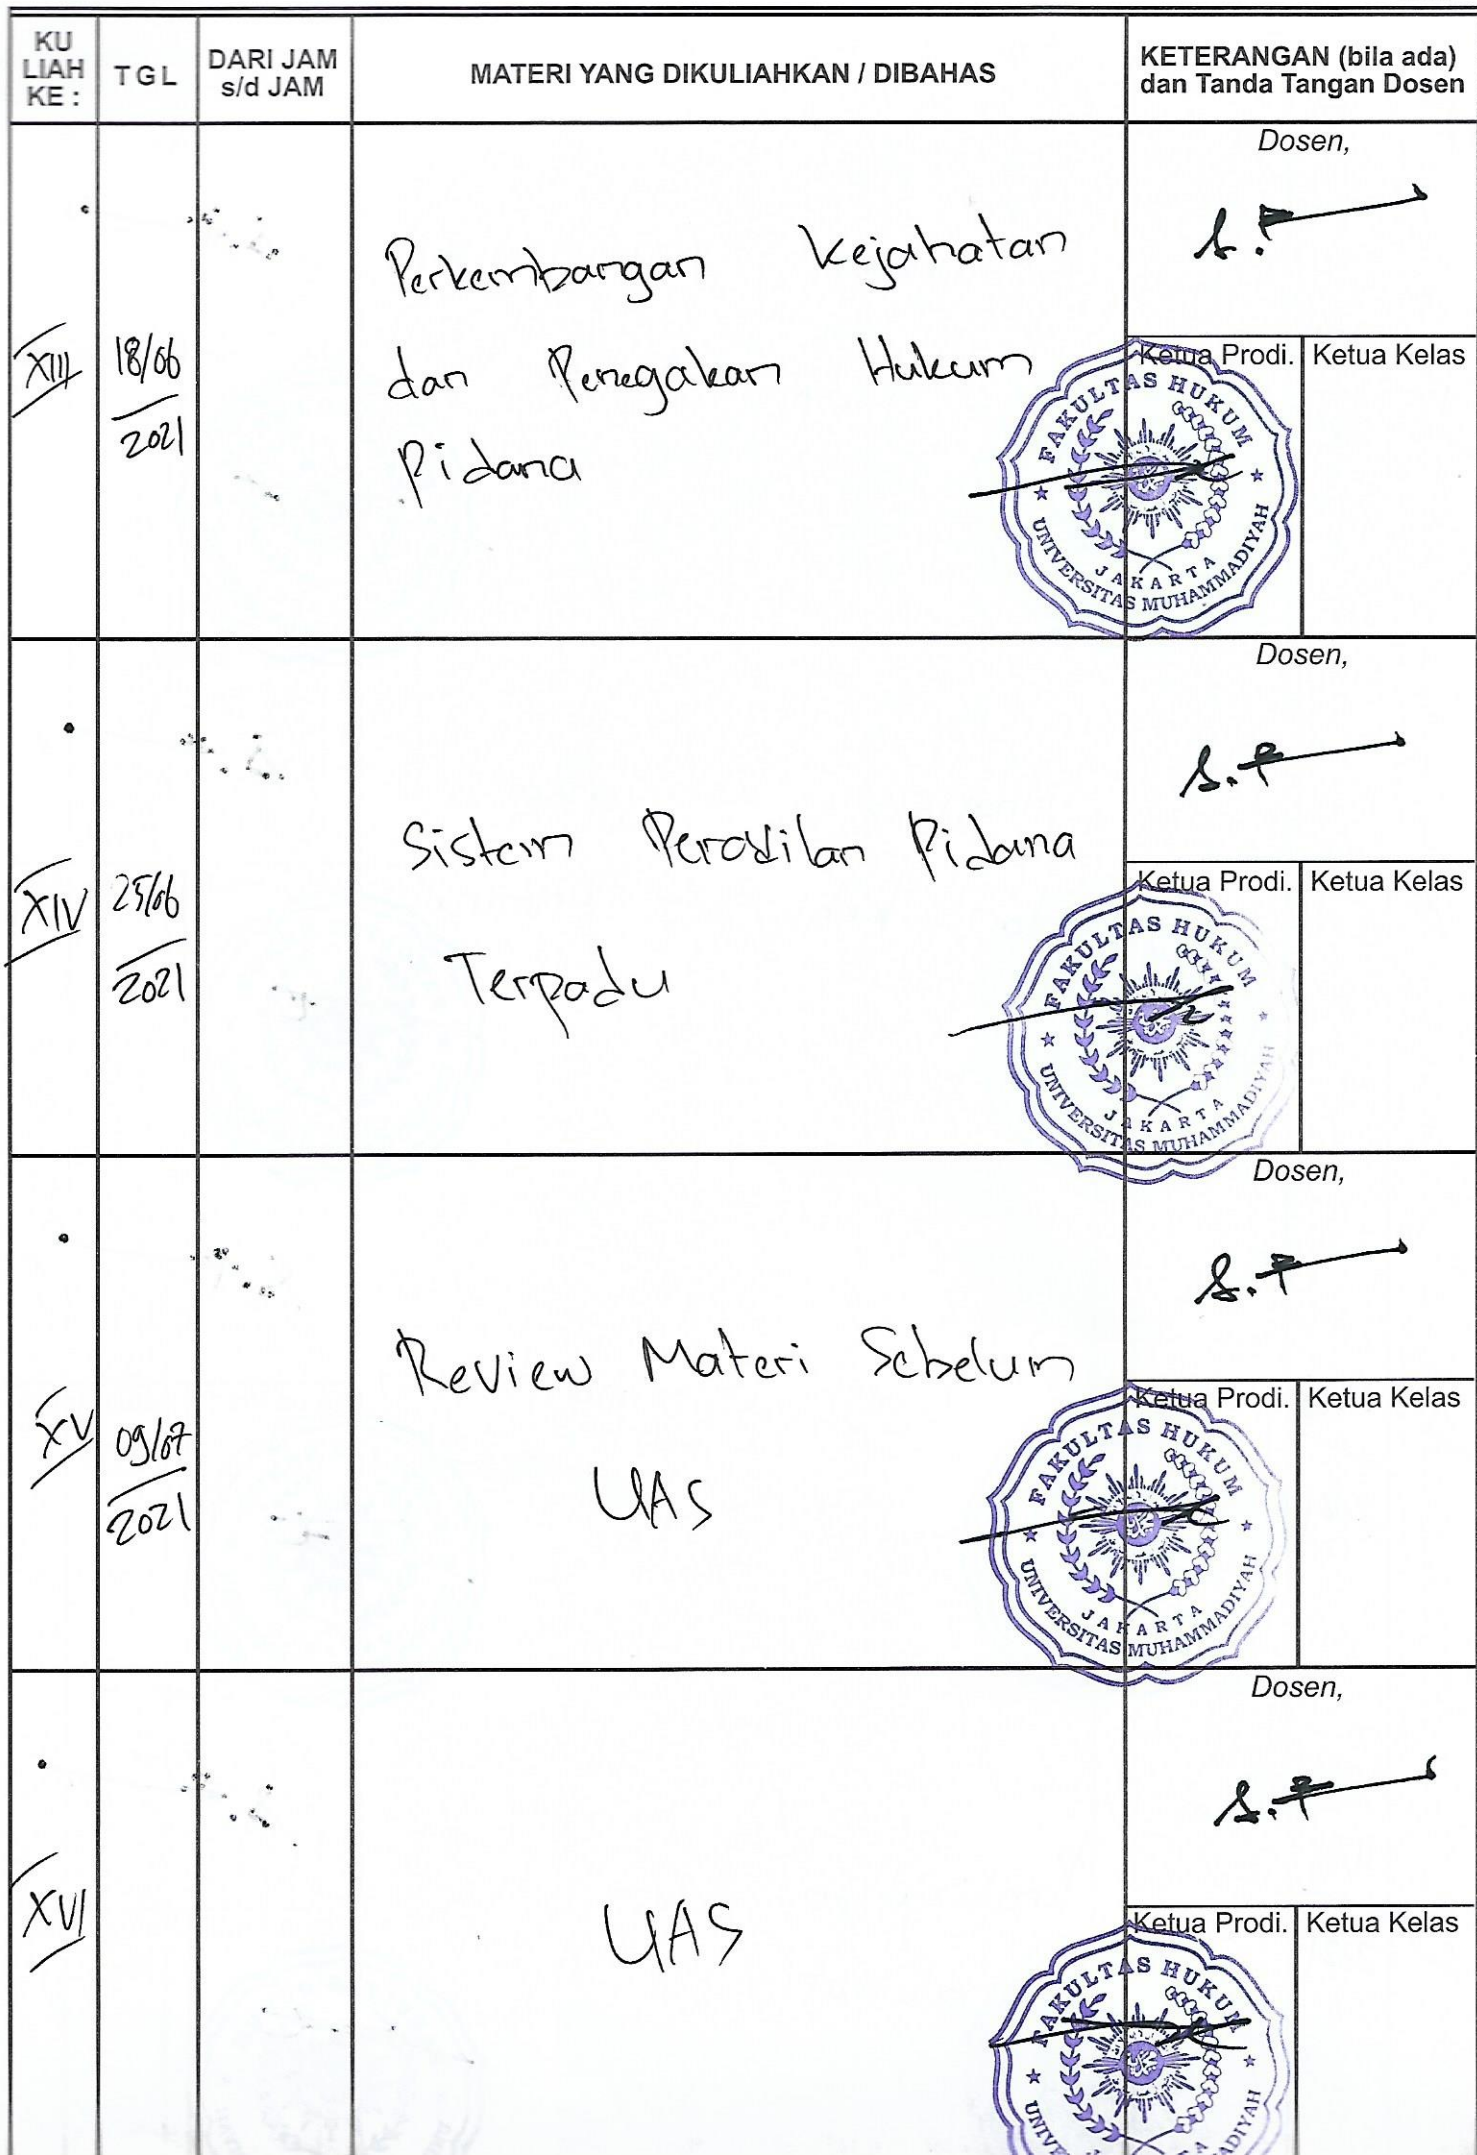 KU
LIAH
KE :
TGL
DARI JAM
s/d JAM
MATERI YANG DIKULIAHKAN / DIBAHAS
KETERANGAN (bila ada)
dan Tanda Tangan Dosen
XIII
18/06
2021
Perkembangan Kejahatan
dan Penegakan Hukum
Pidana
Dosen,
Ketua Prodi.
Ketua Kelas
FAKULTAS HUKUM
JAKARTA
UNIVERSITAS MUHAMMADIYAH
XIV
25/06
2021
Sistem Peradilan Pidana
Terpadu
Dosen,
Ketua Prodi.
Ketua Kelas
FAKULTAS HUKUM
JAKARTA
UNIVERSITAS MUHAMMADIYAH
XV
09/07
2021
Review Materi Sebelum
UAS
Dosen,
Ketua Prodi.
Ketua Kelas
FAKULTAS HUKUM
JAKARTA
UNIVERSITAS MUHAMMADIYAH
XVI
UAS
Dosen,
Ketua Prodi.
Ketua Kelas
FAKULTAS HUKUM